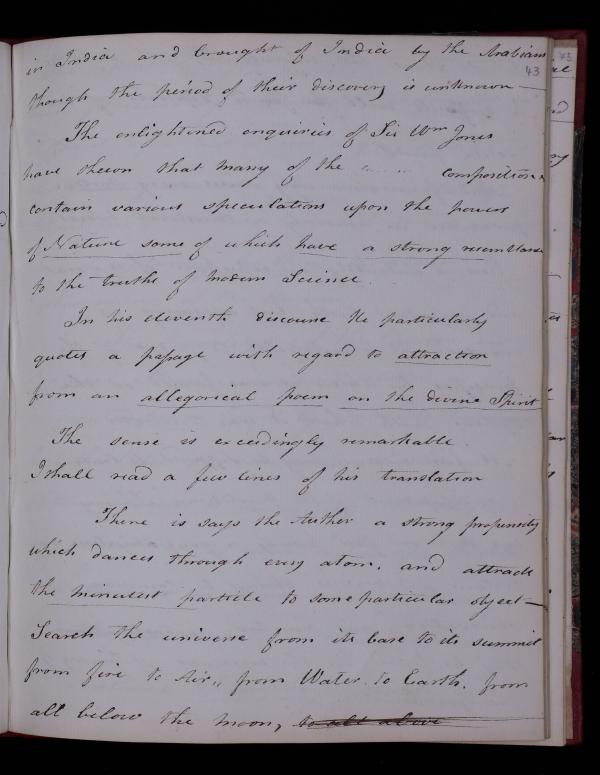 in India and brought of India by the Arabians
43
though the period of their discovery is unknown —
The enlightened enquiries of Sir Wm Jones
have shewn that many of the compositions
contain various speculations upon the powers
of Nature some of which have a strong resemblance
to the truths of modern Science.
In his eleventh discourse He particularly
quotes a passage with regard to attraction
from an allegorical poem on the divine Spirit
The sense is exceedingly remarkable.
I shall read a few lines of his translation
There is says the Author a strong propensity
which dances through every atom, and attracts
the minutest particle to some particular object —
Search the universe from its base to its summit
from fire to Air, from Water to Earth, from
all below the moon, to all above